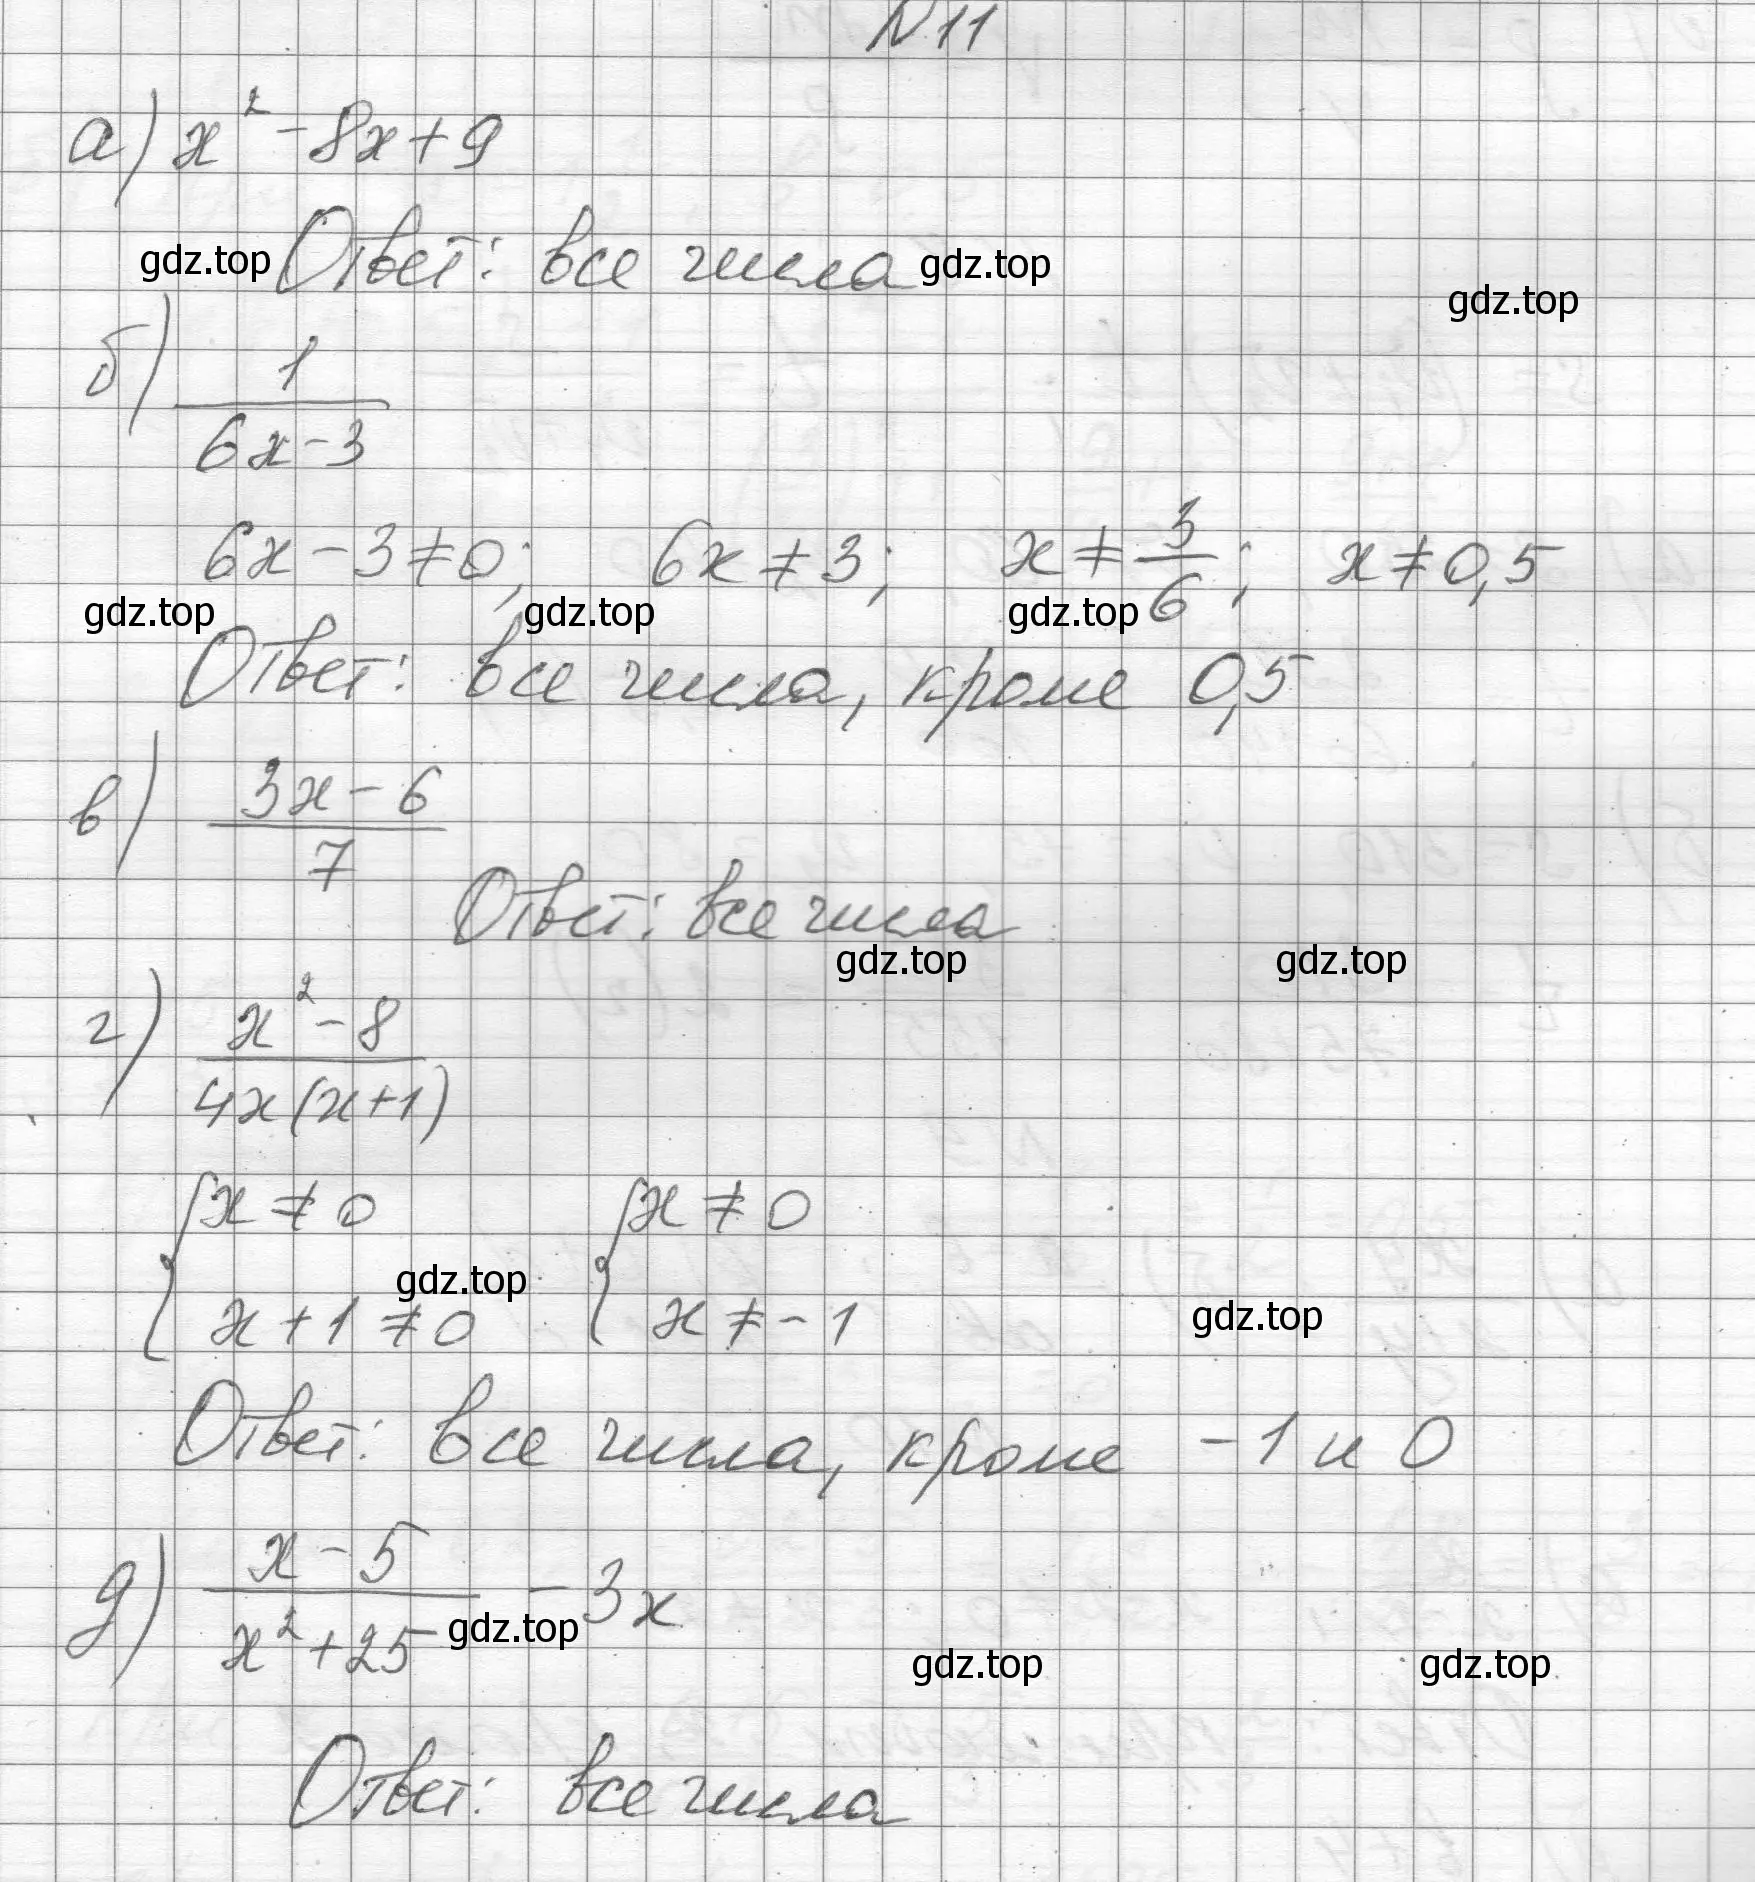 N 11
а) x² - 8x + 9
gdz.top Ответ: все числа gdz.top
gdz.top
б) 1/(6x - 3)
6x - 3 ≠ 0; 6x ≠ 3; x ≠ 3/6; x ≠ 0,5
gdz.top gdz.top gdz.top
Ответ: все числа, кроме 0,5
в) (3x - 6)/7
Ответ: все числа
gdz.top gdz.top
г) (x² - 8)/(4x(x+1))
{x ≠ 0 {x ≠ 0
gdz.top gdz.top
x + 1 ≠ 0 x ≠ -1
Ответ: все числа, кроме -1 и 0
д) (x - 5)/(x² + 25) - 3x
gdz.top gdz.top gdz.top
Ответ: все числа